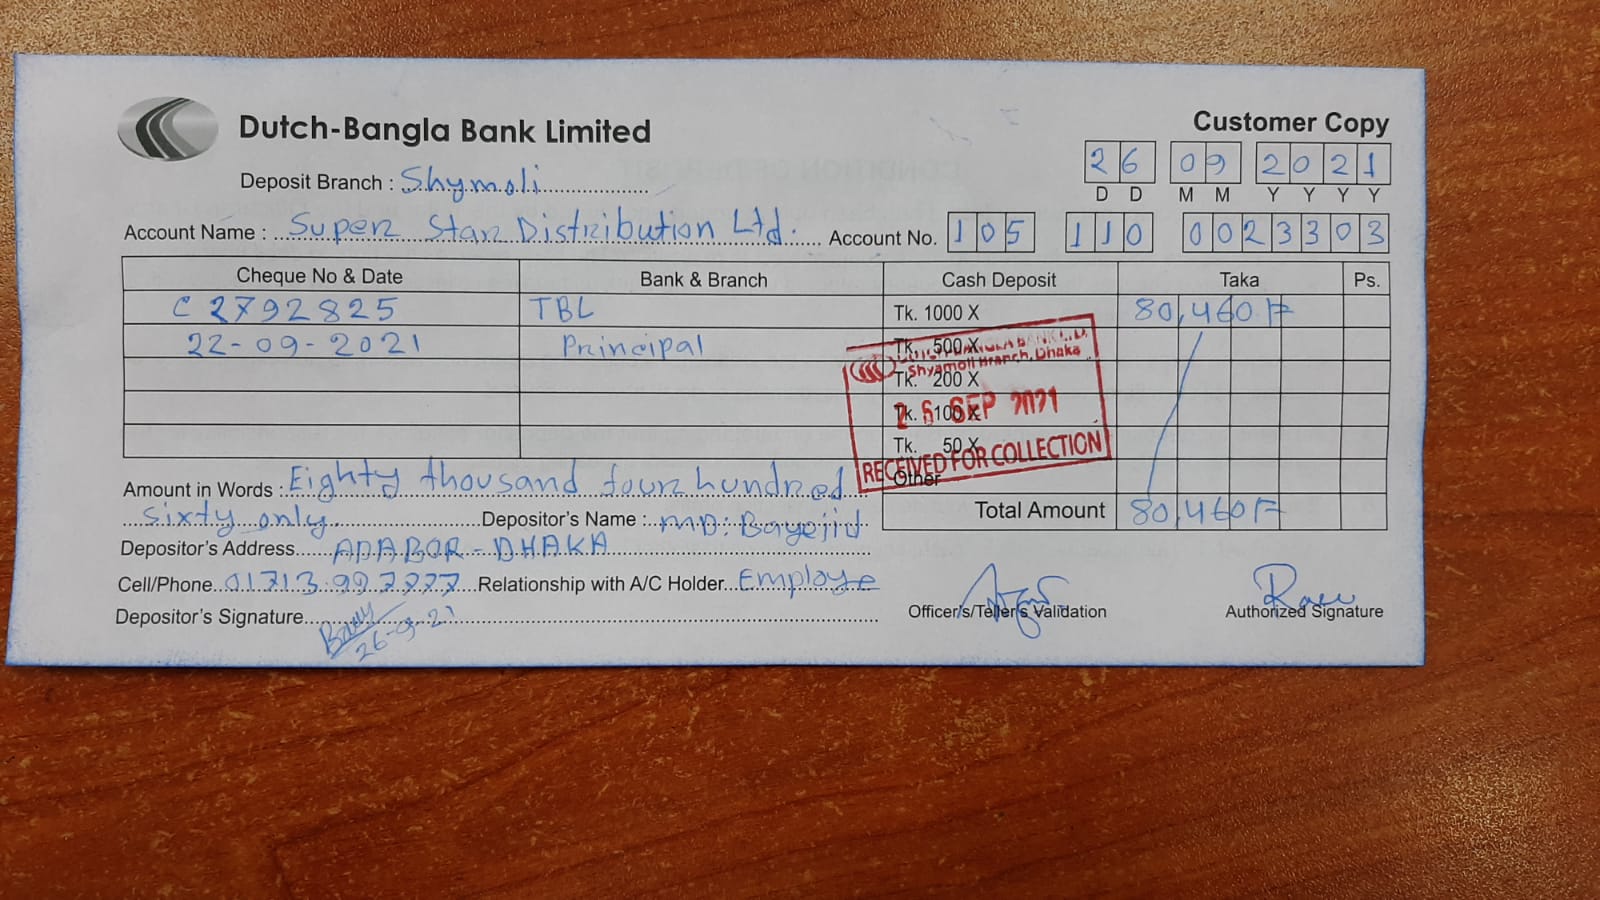 Dutch-Bangla Bank Limited
Customer Copy
Deposit Branch : Shymoli
26 09 2021
D D M M Y Y Y Y
Account Name : Super Star Distribution Ltd. Account No. 105 110 0023303
Cheque No & Date Bank & Branch Cash Deposit Taka Ps.
C 2792825 TBL Tk. 1000 X 80,460 F
22-09-2021 Principal Tk. 500 X
Tk. 200 X
Tk. 100 X
Tk. 50 X
Other
Shyamoli Branch, Dhaka
26 SEP 2021
RECEIVED FOR COLLECTION
Amount in Words : Eighty thousand four hundred
sixty only. Depositor's Name : MD: Bayejid
Total Amount 80,460 F
Depositor's Address ADABOR - DHAKA
Cell/Phone Relationship with A/C Holder Employe
Depositor's Signature 26-9-21
Officer's/Teller's Validation Authorized Signature